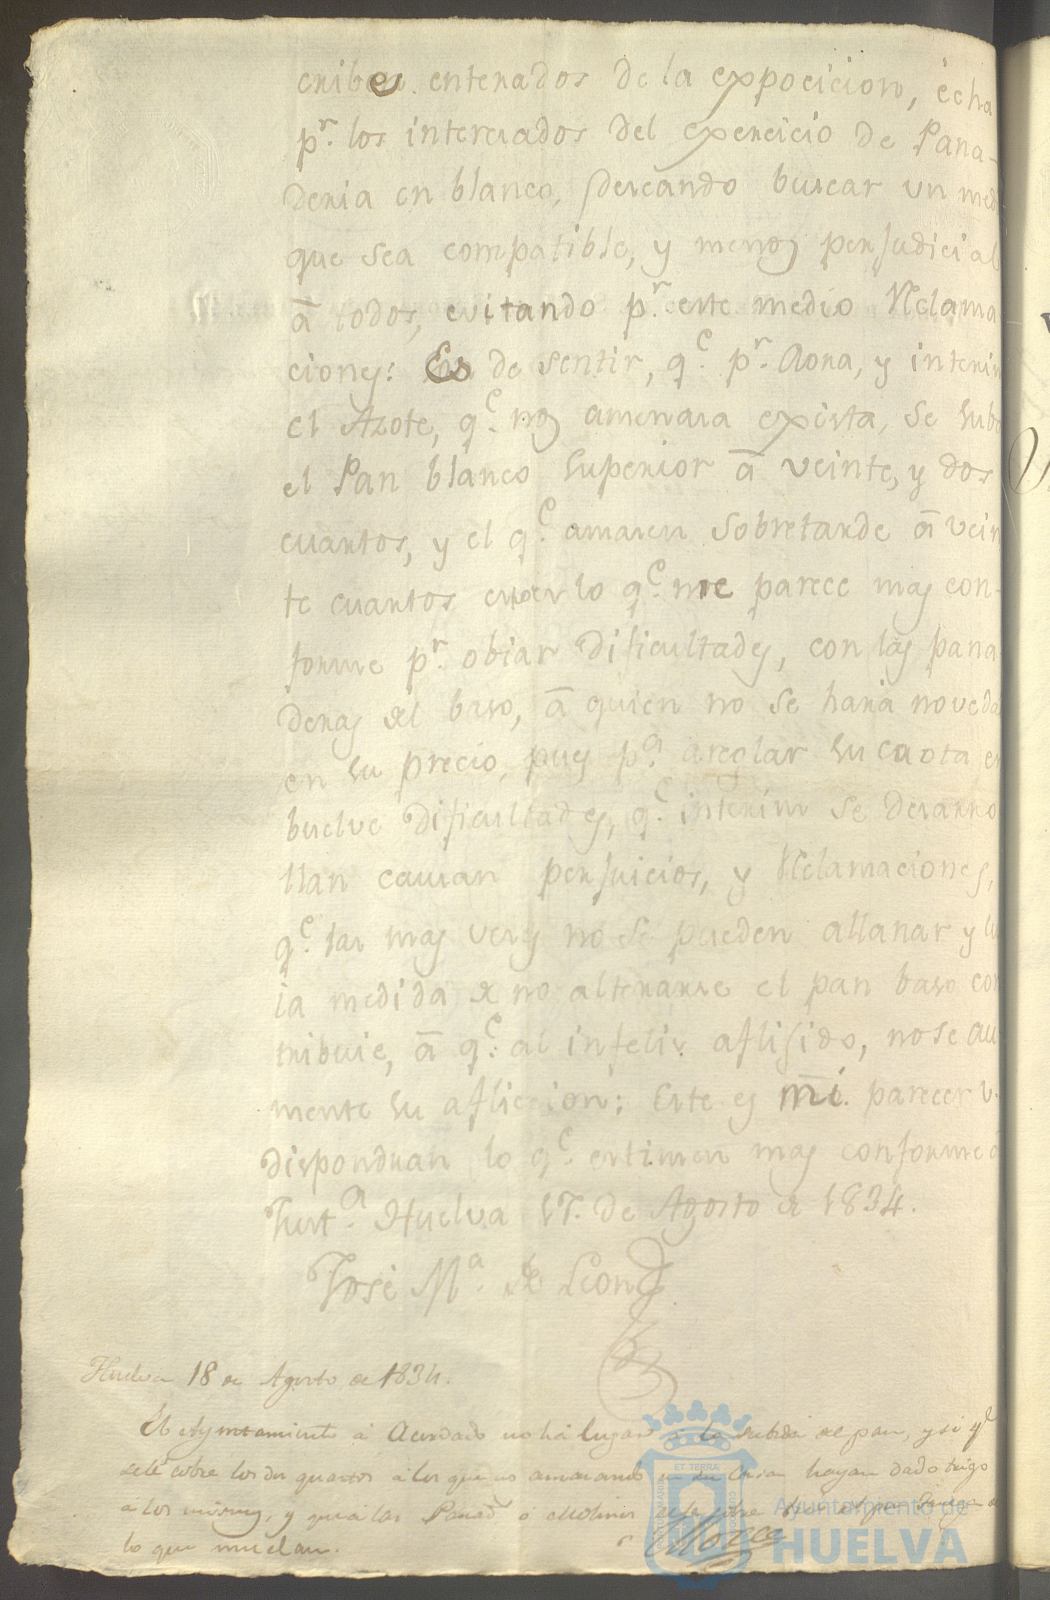 criben enterados de la expocicion, écha
pr. los interesados del exercicio de Pana-
deria en blanco, deseando buscar un med
que sea compatible, y menos perjudicial
à todos, evitando pr. este medio Reclama
ciones: Es de sentir, qe. pr. Aora, y interin
el Azote, qe. nos amenasa exista, se suba
el Pan blanco superior à veinte, y dos
cuartos, y el qe. amasen sobretarde à vein
te cuartos lo qe. me parece mas con-
forme pr. obiar dificultades, con las pana
deras del baso, à quien no se hará noveda
en su precio, pues pa. areglar su cuota en
buelve dificultades, qe. interin se desarro
llan causan perjuicios, y Reclamaciones,
qe. las mas veses no se pueden allanar y
la medida de no alterarse el pan baso con
tribuie, à qe. al infelis aflijido, no se au
mente su afliccion: Este es mi parecer v.
dispondran lo qe. estimen mas conforme à
Justa. Huelva 17. de Agosto de 1834.
José Ma. de Leon
Huelva 18 de Agosto de 1834.
El Ayuntamiento à Acordado no há lugar à la subida del pan, y si qe
se le cobre los dos quartos à los que no amasando en su casa hayan dado trigo
à los mismos, y que à las Panad ó Molinos se le cobre
lo que muelan.
ET TERRA
Ayuntamiento de
HUELVA